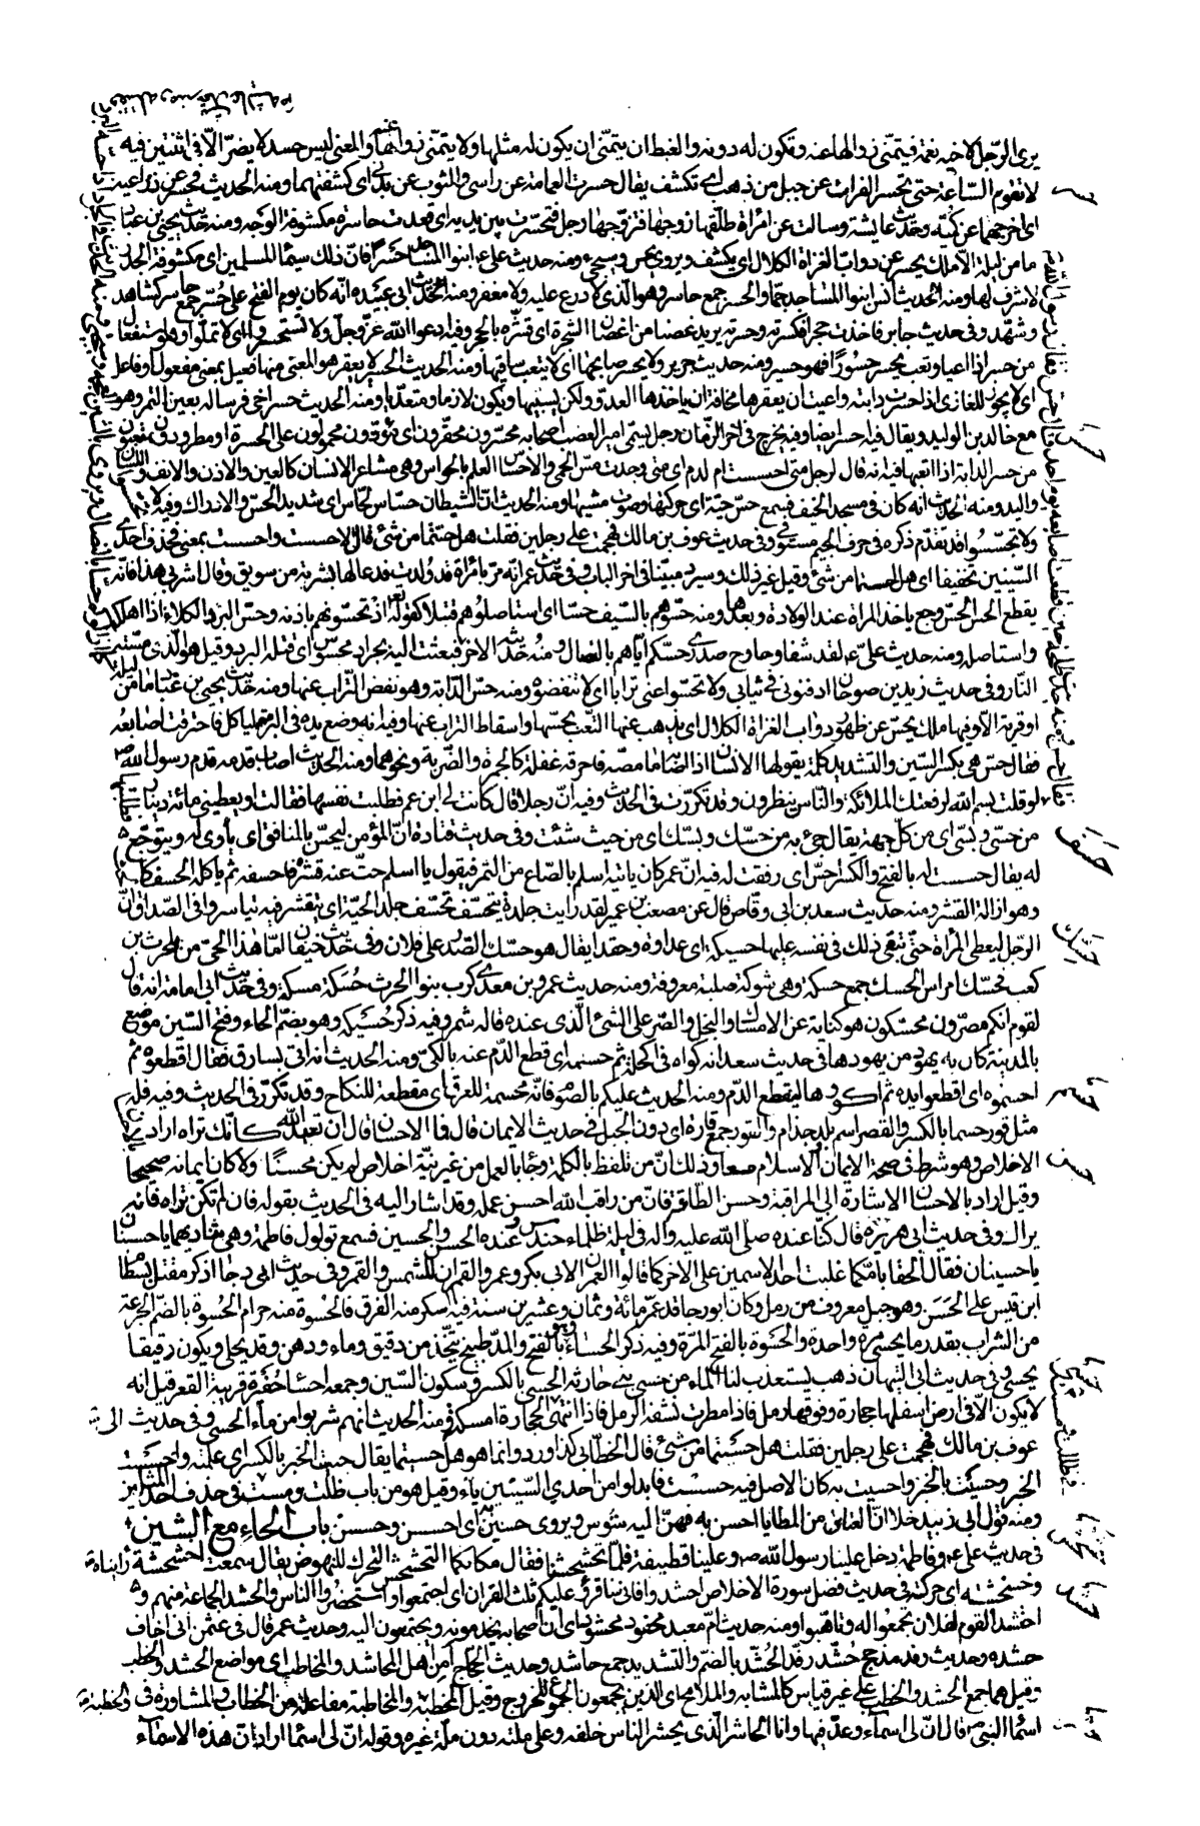 يرى الرّجل لاخيه نعمة فيتمنّى زوالها عنه وتكون له دونه والغبط ان يتمنّى ان يكون له مثلها ولا يتمنّى زوالها عنه والمعنى ليس حسد لا يضرّ الّا فى اثنتين فيه
لا تقوم السّاعة حتى تحسر الفرات عن جبل من ذهب اى تكشف يقال حسرت العمامة عن راسى والثوب عن بدنى اى كشفتهما ومنه الحديث فحسر عن ذراعيه
اى اخرجهما عن كمّيه وحديث عايشة وسالت عن امراة طلّقها زوجها فتزوّجها رجل فتحسّرت بين يديه اى قعدت حاسرة مكشوفة الوجه ومنه حديث يحيى بن عباد
ما من ليلة الّا ملك يحسر عن دوابّ الغزاة الكلال اى يكشف ويروى يحسّ وسيجىء ومنه حديث على ع ابنوا المساجد حسّرا فانّ ذلك سيمآ المسلمين اى مكشوفة الجدر
لا شرف لها ومنه الحديث انس ابنوا المساجد جمّا والحسّر جمع حاسر وهو الّذى لا درع عليه ولا مغفر ومنه الحديث ابى عبيدة انّه كان يوم الفتح على الحسّر جمع حاسر كشاهد
وشهّد وفى حديث جابر فاخذت حجرا فكسرته وحسرته يريد غصنا من اغصان الشجرة اى قشره بالحجر وفيه ادعوا الله عزّ وجلّ ولا تستحسروا اى لا تملّوا وهو استفعال
من حسر اذا اعيا وتعب يحسر حسورا فهو حسير ومنه حديث جرير ولا يحسر صابحها اى لا يتعب ساقيها ومنه الحديث الحسير لا يعقر هو المعنى منها فعيل بمعنى مفعول او فاعل
اى لا يجوز للغازى اذا حسرت دابته واعيت ان يعقرها مخافة ان ياخذها العدو ولكن يسيّبها ويكون لازما ومتعدّيا ومنه الحديث حسر اخى فرسا له بعين التمر وهو
مع خالد بن الوليد ويقال فيه احسر ايضا وفيه يخرج فى اخر الزّمان رجل يسمّى امير العصب اصحابه محسّرون محقّرون اى مؤذون محمولون على الحسرة او مطرودون متعبون
من حسر الدابة اذا اتعبها فيه انه قال لرجل متى احسست امّ ملدم اى متى وجدت مسّ الحمى والاحساس العلم بالحواس وهى مشاعر الانسان كالعين والاذن والانف واللسان
واليد ومنه الحديث انه كان فى مسجد الخيف فسمع حسّ حيّة اى حركتها وصوت مشيها ومنه الحديث انّ الشيطان حسّاس لحّاس اى شديد الحسّ والادراك وفيه لا تجسّسوا
ولا تحسّسوا قد تقدّم ذكره فى حرف الجيم مستوفى وفى حديث عوف بن مالك فهجمت على رجلين فقلت هل حستما من شئ قالا لا حست واحست بمعنى فحذف احدى
السّينين تخفيفا اى هل احسستما من شئ وقيل غير ذلك وسيرد مبيّنا فى اخر الباب وفى حديث عمر انّه مرّ بامراة قد ولدت فدعا لها بشربة من سويق وقال اشربى هذا فانه
يقطع الحسّ الحسّ وجع ياخذ المراة عند الولادة وبعدها ومنه حسّوهم بالسّيف حسّا اى استاصلوهم قتلا كقوله تعالى اذ تحسّونهم باذنه وحسّ البرد الكلاء اذا اهلكه
واستاصله ومنه حديث علىّ ع لقد شفا وحاوح صدرى حسّكم ايّاهم بالنصال ومنه حديثه الاخر فبعثت اليه بجراد محسوس اى قتله البرد وقيل هو الّذى مسّته
النّار وفى حديث زيد بن صوحان ادفنونى فى ثيابى ولا تحسّوا عنى ترابا اى لا تنفضوه ومنه حسّ الدّابة وهو نفض التّراب عنها ومنه حديث يحيى بن عبّاد ما من ليلة
او قرية الّا وفيها ملك يحسّ عن ظهور دوابّ الغزاة الكلال اى يذهب عنها التعب بحسّها واسقاط التراب عنها وفيه انه وضع يده فى البرمة ليأكل فاحترقت اصابعه
فقال حسّ هى بكسر السّين والتشديد كلمة يقولها الانسان اذا اصابه ما مضّه واحرقه غفلة كالجمرة والضّربة ونحوهما ومنه الحديث اصاب قدمه قدم رسول الله
لو قلت بسم الله لرفعتك الملائكة والنّاس ينظرون وقد تكرّرت فى الحديث وفيه انّ رجلا قال كانت لى ابنة عم فطلبت نفسها فقالت او يعطينى مائة دينار
من حسّى وبسّى اى من كلّ جهة يقال جئ به من حسّك وبسّك اى من حيث شئت وفى حديث قتادة انّ المؤمن ليحسّ بالمنافق اى يأوى له ويتوجّع
له يقال حسست له بالفتح والكسر احسّ اى رققت له فيه انّ عمر كان ياتيه اسلم بالصّاع من التمر فيقول يا اسلم حتّ عنه قشره فاحسفه ثم ياكله الحسف كالحتّ
وهو ازالة القشر ومنه حديث سعد بن ابى وقاص قال عن مصعب بن عمير لقد رايت جلده يتحسّف تحسّف جلد الحيّة اى يتقشّر فيه تياسروا فى الصّداق انّ
الرّجل ليعطى المرأة حتى يبقى ذلك فى نفسه عليها حسيكة اى عداوة وحقد يقال هو حسك الصّدر على فلان وفى حديث خيفان امّا هذا الحىّ من بلحرث بن
كعب فحسك امراس الحسك جمع حسكة وهى شوكة صلبة معروفة ومنه حديث عمرو بن معدى كرب بنوا الحرث حسكة مسكة وفى حديث ابى امامة انه قال
لقوم انكم مصرّون محسّكون هو كناية عن الامساك والبخل والصّر على الشئ الّذى عنده قاله شمر وفيه ذكر حسيكة وهو بضمّ الحاء وفتح السّين موضع
بالمدينة كان به يهود من يهودها فى حديث سعد انه كواه فى اكحله ثم حسمه اى قطع الدّم عنه بالكىّ ومنه الحديث انه اتى بسارق فقال اقطعوه ثم
احسموه اى اقطعوا يده ثم اكووها لينقطع الدّم ومنه الحديث عليكم بالصّوم فانّه محسمة للعرق اى مقطعة للنكاح وقد تكرّر فى الحديث وفيه فله
مثل قور حسما بالكسر والقصر اسم بلد جذام والقور جمع قارة اى دون الجبل فى حديث الايمان قال فما الاحسان قال ان تعبد الله كانّك تراه اراد بالاحسان
الاخلاص وهو شرط فى صحة الايمان والاسلام معا وذلك انّ من تلفظ بالكلمة وجاء بالعمل من غير نيّة اخلاص لم يكن محسنًا ولا كان ايمانه صحيحا
وقيل اراد بالاحسان الاشارة الى المراقبة وحسن الطّاعة فانّ من راقب الله احسن عمله وقد اشار اليه فى الحديث بقوله فان لم تكن تراه فانه
يراك وفى حديث ابى هريرة قال كنّا عنده صلّى الله عليه واله فى ليلة ظلماء حندس وعنده الحسن والحسين فسمع تولول فاطمة وهى تناديهما يا حسنان
يا حسينان فقال الحقا بامّكما غلبت احد الاسمين على الاخر كما قالوا العمران لابى بكر وعمر والقمران للشمس والقمر وفى حديث ابى رجا اذكر مقتل بسطام
ابن قيس على الحَسَن وهو جبل معروف من رمل وكان ابو رجا قد عمّر مائة وثمان وعشرين سنة فيه اسكر منه الفرق فالحسوة منه حرام الحُسوة بالضّم الجرعة
من الشراب بقدر ما يحسى مرة واحدة والحَسوة بالفتح المرّة وفيه ذكر الحساء وهو بالفتح والمدّ طبيخ يتّخذ من دقيق وماء ودهن وقد يحلى ويكون رقيقا
يحسى وفى حديث ابى التيهان ذهب يستعذب لنا الماء من حسى بنى حارثة الحسى بالكسر وسكون السّين وجمعه احساء حفرة قريبة القعر قيل انه
لا يكون الّا فى ارض اسفلها حجارة وفوقها رمل فاذا مطرت نشفه الرمل فاذا انتهى الى الحجارة امسكته ومنه الحديث انهم شربوا من ماء الحسى وفى حديث
عوف بن مالك فهجمت على رجلين فقلت هل حستما من شئ قال الخطّابى كذا ورد وانما هو هل حسيتما يقال حسيت الخبر بالكسر اى علمته واحسيت
الخبر وحسيت بالخبر واحسيت به كان الاصل فيه حسست فابدلوا من احدى السّينين ياء وقيل هو من باب ظلت ومست فى حذف احد المثلين
ومنه قول ابى زبيد خلا انّ العتاق من المطايا احسن به فهنّ اليه شوس ويروى حسين اى احسسن وحسسن باب الحاء مع الشين
فى حديث على ع وفاطمة دخل علينا رسول الله ص وعلينا قطيفة فلمّا رايناه تحشحشنا فقال مكانكما التحشحش التحرك للنهوض يقال سمعت له حشحشة
وخشخشة اى حركة فى حديث فضل سورة الاخلاص احشدوا فانى ساقرؤ عليكم ثلث القران اى اجتمعوا واستحضروا الناس والحشد الجماعة منهم و
احتشد القوم لفلان تجمّعوا له وتاهّبوا ومنه حديث امّ معبد محفود محشود اى انّ اصحابه يخدمونه ويجتمعون اليه وحديث عمر قال فى عثمن انى اخاف
حشده وحديث وفد مذحج حشّد رفّد الحُشّد بالضمّ والتشديد جمع حاشد وحديث الحجّاج امن اهل المحاشد والمخاطب اى مواضع الحشد والخطب
وقيل هما جمع الحشد والخطب على غير قياس كالمشابه والملامح اى الذين يجمعون الجموع للخروج وقيل المخطبة والمخاطبة مفاعلة من الخطاب والمشاورة فى
اسماء النبىّ ص قال انّ لى اسمآء وعدّ فيها وانا الحاشر الّذى يحشر الناس خلفه وعلى ملته دون ملّة غيره وقوله انّ لى اسماء اراد انّ هذه الاسمآء
حسر
حسس
حسف
حسك
حسم
حسن
حسا
حشحش
حشد
حشر